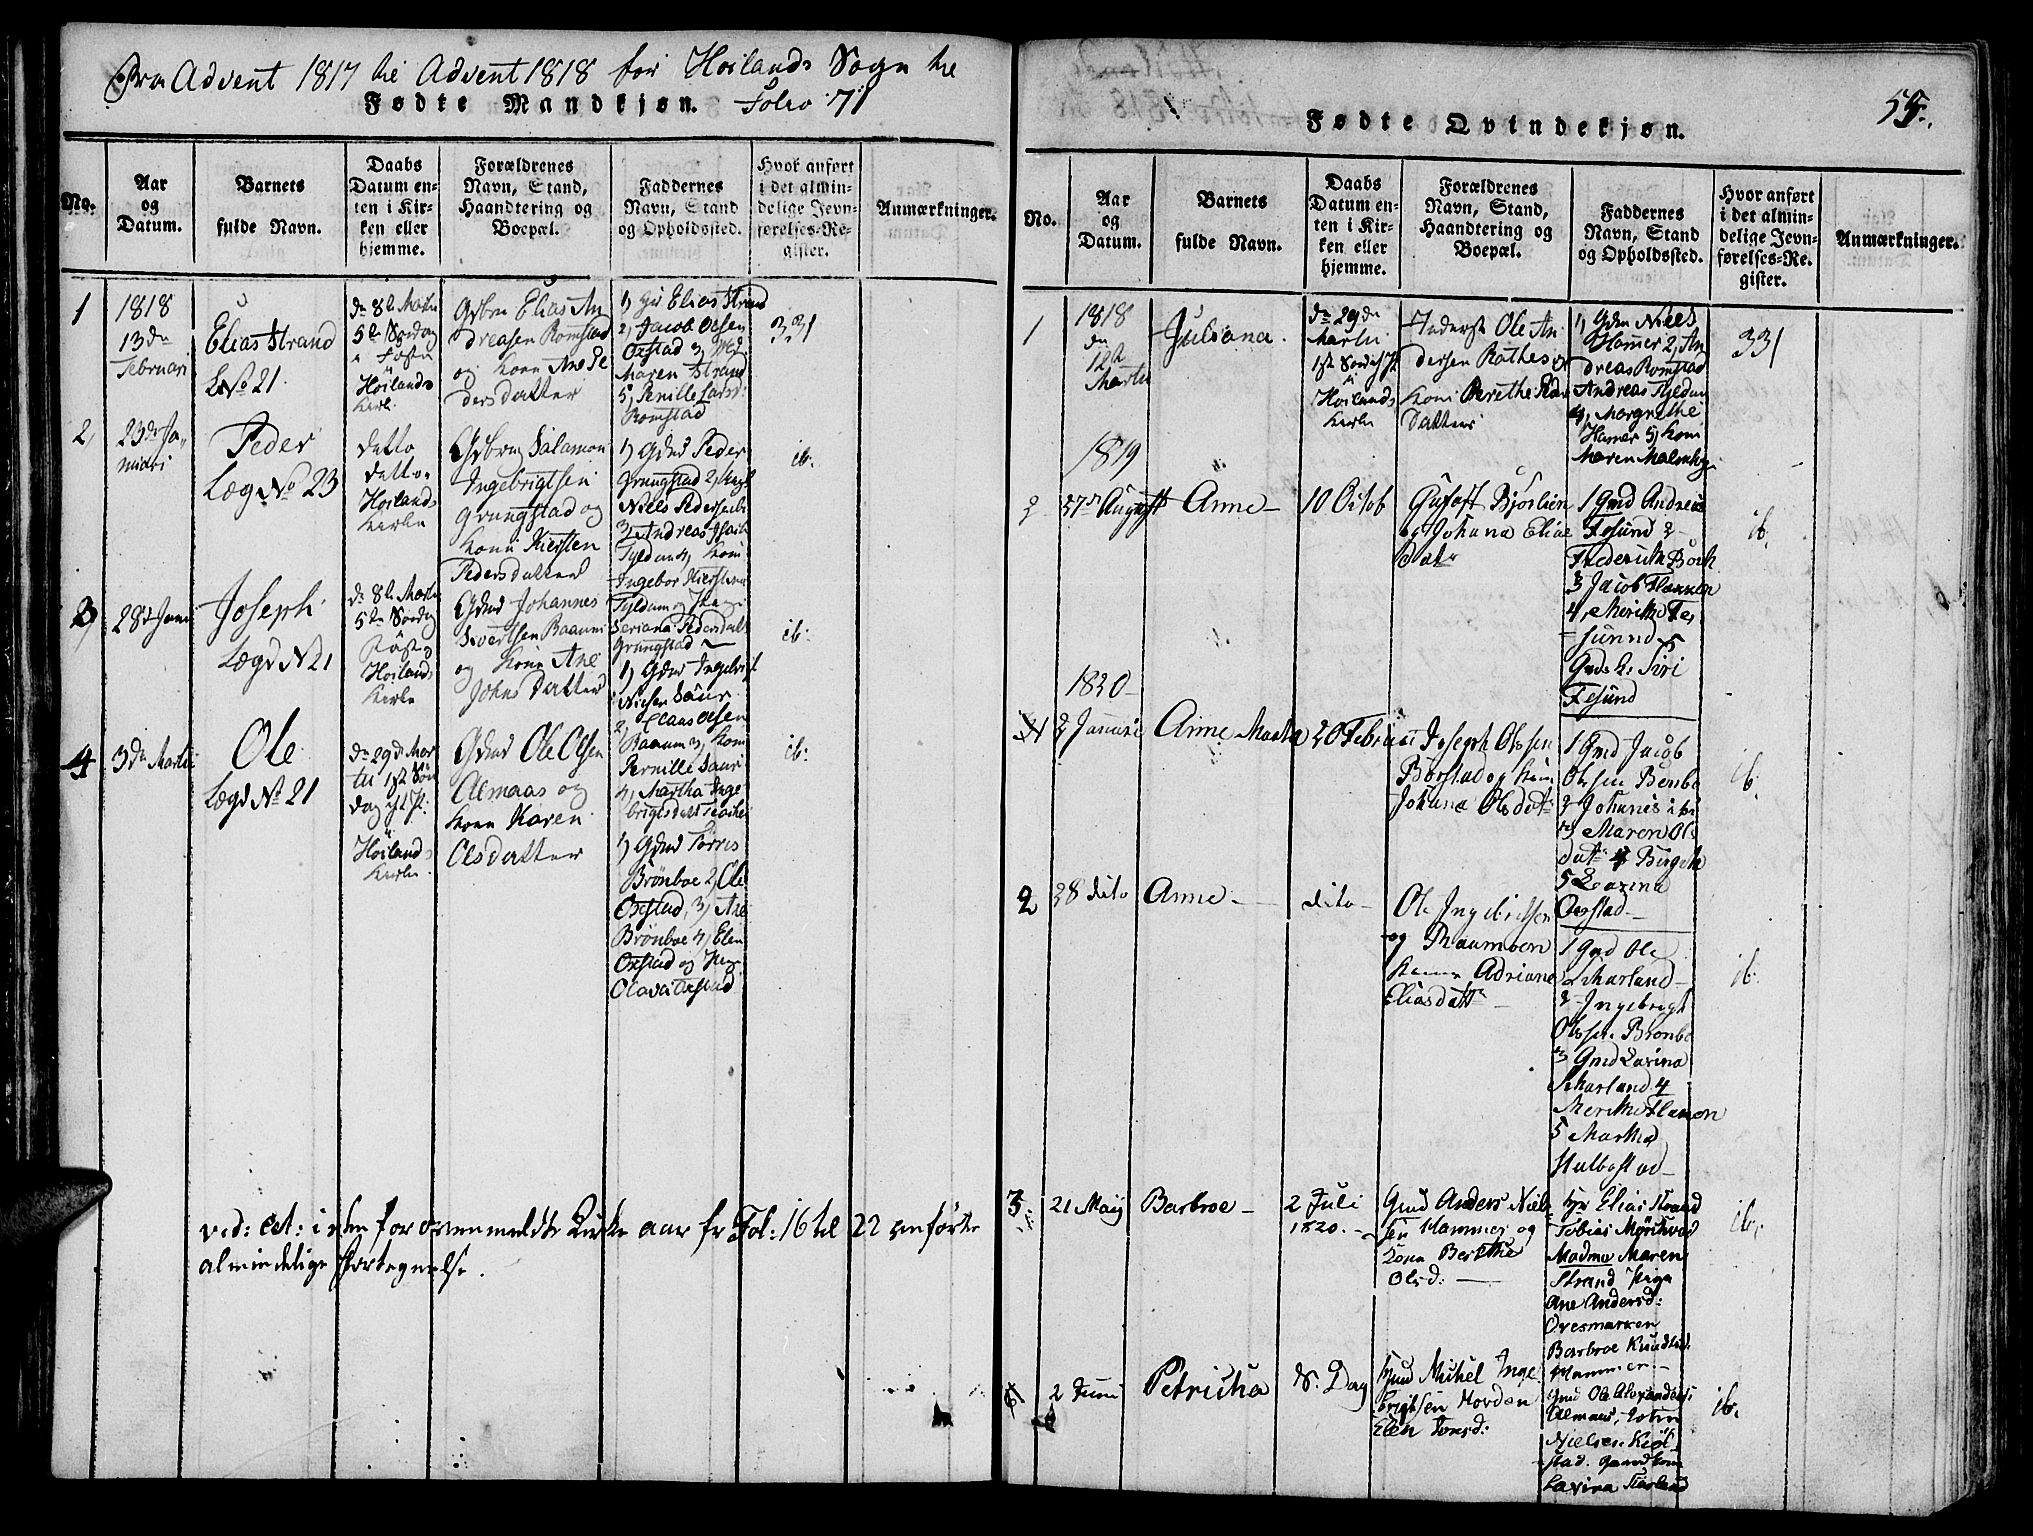 Fra Advent 1817 til Advent 1818 for Höilands Sogn til
Fødte Mandkjøn. Folio 71
No.
Aar
og
Datum.
Barnets
fulde Navn.
Daabs
Datum en-
ten i Kir-
ken eller
hjemme.
Forældrenes
Navn, Stand,
Haandtering og
Boepæl.
Faddernes
Navn, Stand
og Opholdssted.
Hvor anført
i det almin-
delige Jevn-
førelses-Re-
gister.
Anmærkninger.
1
1818
13de
Februari
Elias Strand
L No 21
de 8de Martii
5te Söndag
i Faste
Höilands
Kirke
Gdbru Elias An
dreasen Romstad
og Kone Ane Pe
dersdatter
1, Hr Elias Strand
2, Jacob Olsen
Oxstad 3, Md
Maren Strand
5, Pernille Larsd:
Romstad
331
2,
23de Ja-
nuari
Peder
Læg No 23
ditto
ditto
Höilands
Kirke
Gdbrug Salamon
Ingebrigtsen
Grungstad og
Kone Kiersten
Pedersdatter
1, Gdmd Peder
Grungstad 2,
Niels Pedersen
3, Andreas
Tyldum 4, Kone
Ingebor
Tyldum og
Seriana Pedersdatt
Grungstad
ib:
3,
28de Janu
Joseph
Lægd N 21
de 8de Martii
5te Sondag
i Faste
Höilands
Kirke
Gdmd Johannes
Sivertsen Baaum
og Kone Ane
Johns Datter
1, Gdmd Ingebrigt
Nielsen Saur
2, Claus Olsen
Baaum 3, Kone
Pernille Saur
4, Martha Inge
brigtsdatt
ib:
4
3de Martii
Ole
Lægd No 21
de 29de Mar
tii 1ste Sön
dag
Höilands
Kirke
Gdmd Ole Olsen
Almaas og
Kone Karen
Olsdatter
1, Gdmd Torris
Brönboe 2, Ole
Oxstad, 3, Ane
Brönboe 4, Elen
Oxstad og
Olava Oxstad
ib:
ved: est: i den for ommeldte Kirke aar fr Fol: 16 til 22 anførte
almindelige fortegnelse.
55.
Fødte Qvindekjøn.
No.
Aar
og
Datum.
Barnets
fulde Navn.
Daabs
Datum en-
ten i Kir-
ken eller
hjemme.
Forældrenes
Navn, Stand,
Haandtering og
Boepæl.
Faddernes
Navn, Stand
og Opholdssted.
Hvor anført
i det almin-
delige Jevn-
førelses-Re-
gister.
Anmærkninger.
1
1818
de
12te
Martii
Juliana.
de 29de
Martii
1ste
i
Höilands
Kirke
Inderst Ole An
dersen
Kone Berethe Peders
Datter
1, Gdm Niels
Hamer 2, An
dreas Romstad
Andreas Tyldum
4, Margrethe
Hamer 5, Kone
Maren
331
1819
2
27de August
Anne
10 Octob
Gustaft Bjorlien
og Johana Eliae
Datr
1 Gmd Andreas
Fosund 2
Frederich
3 Jacob Flakken
4,
Gmds k: Siri
Fosund
ib.
1820
2 Januri
Anne Marta
20 Februari
Joseph Olssen
Borstad og Kone
Johana Olsdatr
1 Gmd Jacob
Olssen Benbo
2 Johanis
3 Maren Ols
datr 4 Birgith
5 Lovina
Oxstad
ib.
2
28 dito
Anne
dito
Ole Ingebrictsen
og
Kone Adriana
Eliasdatr
1 Gmd Ole
Skarland
2 Ingebrigt
Olssen Bronbo
3 Gmd Lavina
Skarland 4
5 Martha
ib.
5
21 Maij
Barbroe
2 Juli
1820.
Gmd Anders Niel
sen Hammer og
Kone Berethe
Olsd:
Hr Elias Strand
Tobias
Madme Maren
Strand Piga
Ane Andersd:
Overmarken
Barbroe Knudsd.
Hammer
ib.
6
2 Juni
Petricha
S. Dag
Gmd Mikel Inge
brigtsen Morden
Elen Tomsd:
Gmd Ole Alexanders
Almaas, John
Nielsen
Lavina
ib.